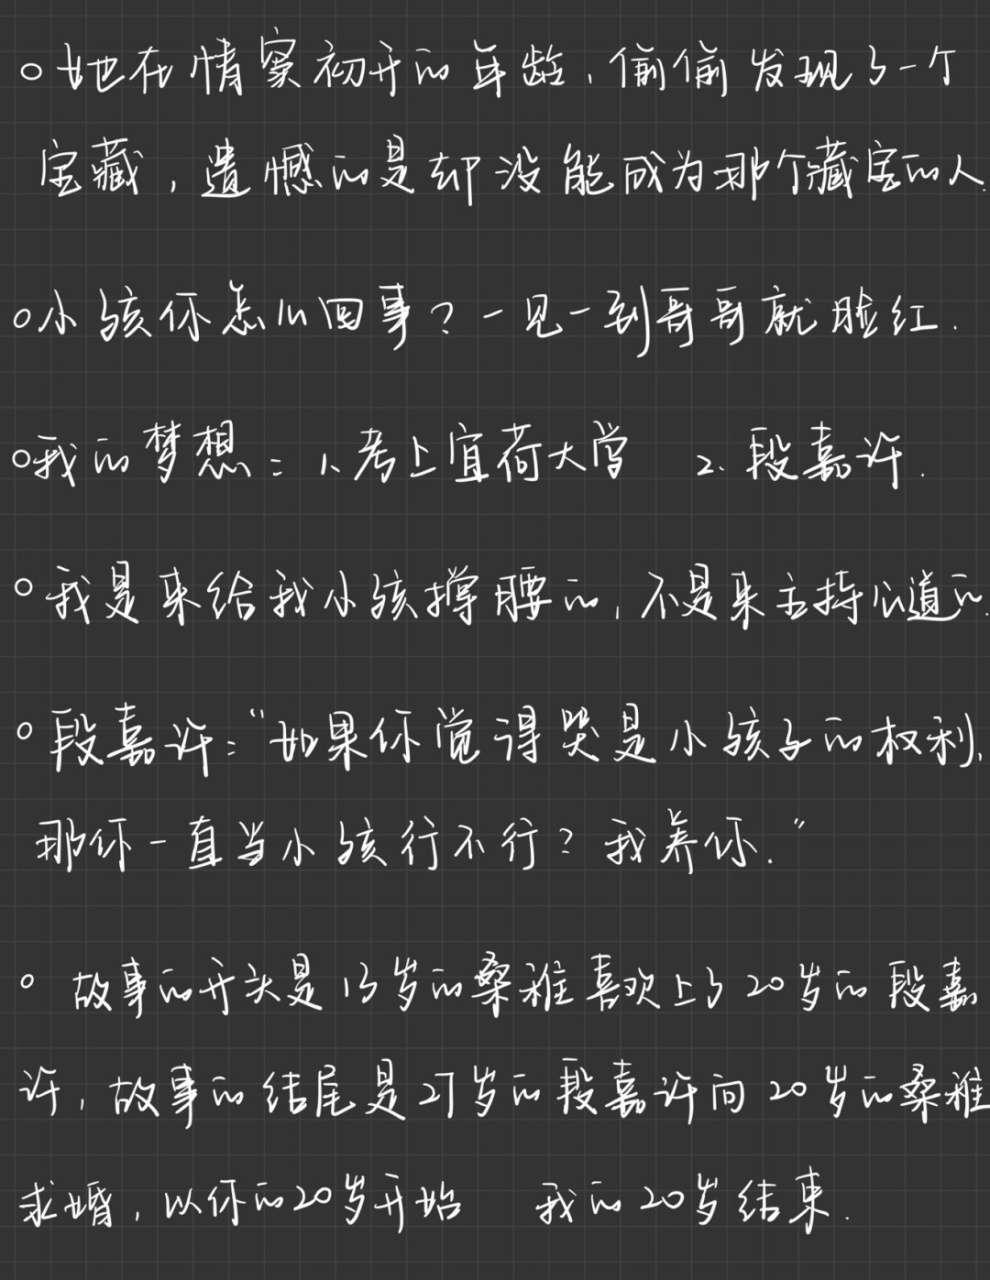 ○她在情窦初开的年龄，偷偷发现了一个
宝藏，遗憾的是却没能成为那个藏宝的人.
○小孩你怎么回事？一见一到哥哥就脸红.
○我的梦想：1、考上宜荷大学 2. 段嘉许.
○我是来给我小孩撑腰的，不是来主持公道的.
○段嘉许：“如果你觉得哭是小孩子的权利，
那你一直当小孩行不行？我养你.”
○故事的开头是13岁的桑稚喜欢上了20岁的段嘉
许，故事的结尾是27岁的段嘉许向20岁的桑稚
求婚，以你的20岁开始 我的20岁结束.